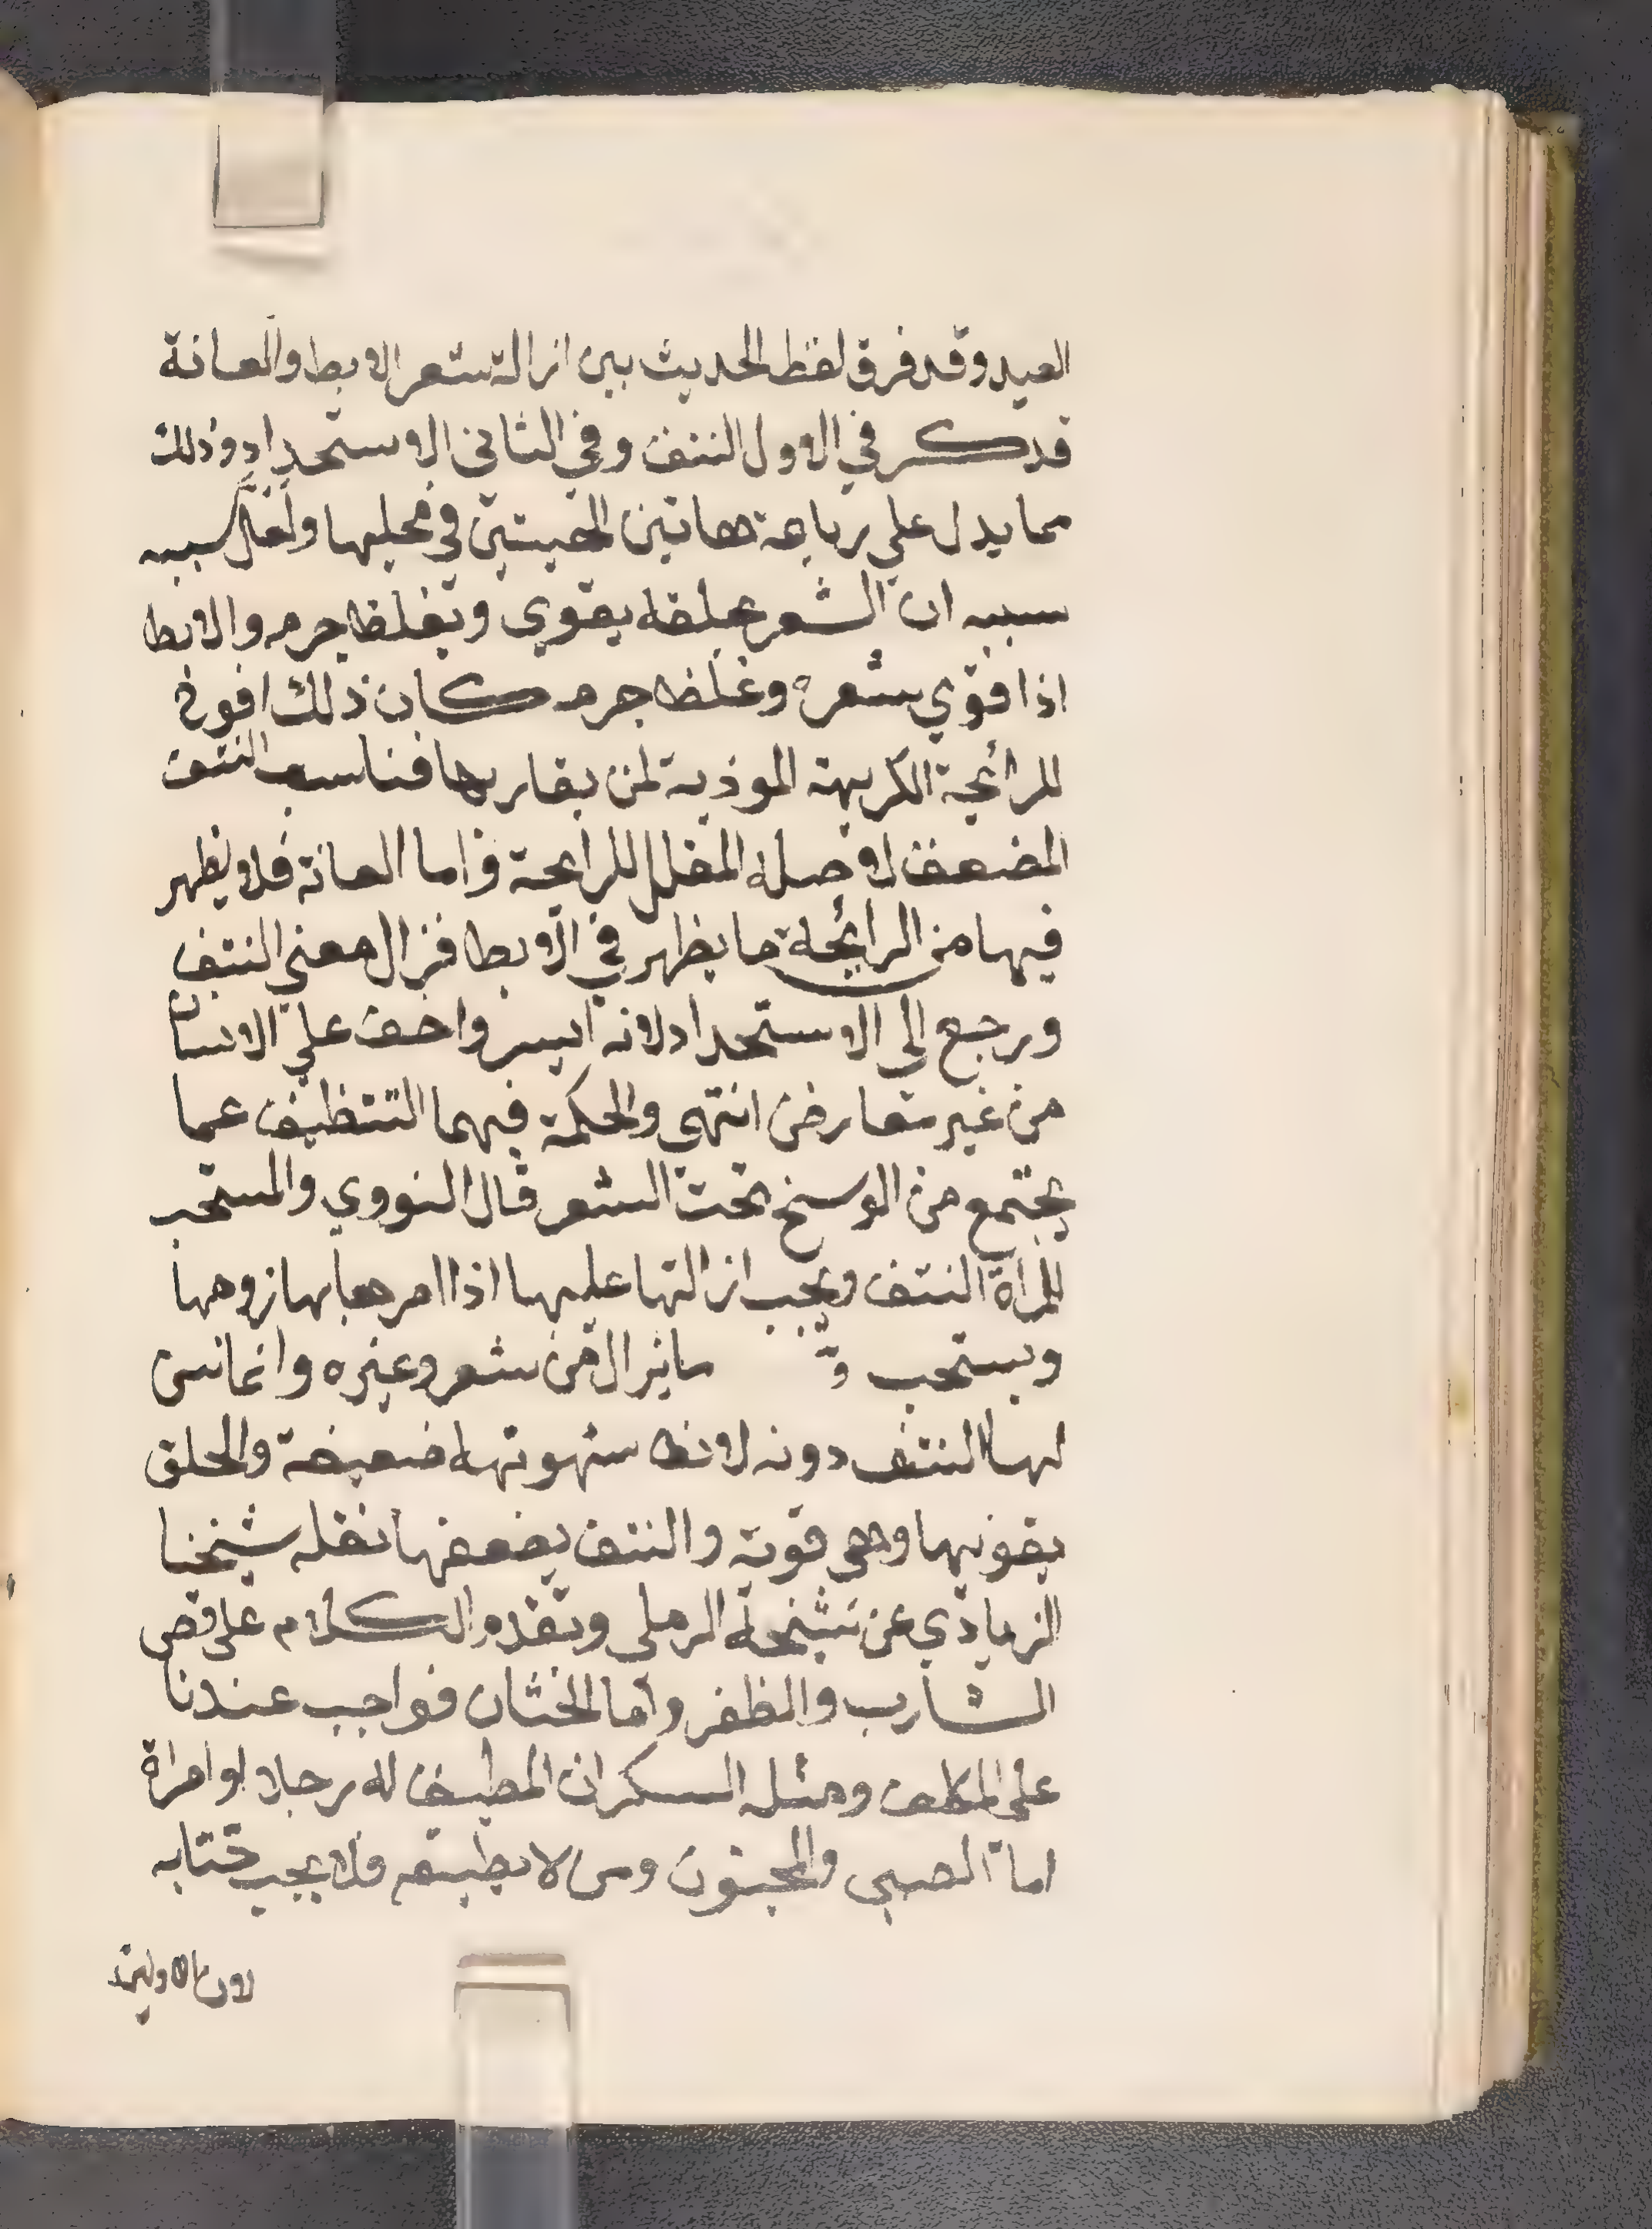 العيد وقد فرق لفظ الحديث بين ازالة شعر الابط والعانة
فدكر في الاول النتف وفي الثاني الاستحداد وذلك
مما يدل على رياعة هاتين الهيئتين في محليها ولعل سببه
سببه ان الشعر بحلقه يقوي ويغلظ جرمه والابط
اذا قوي شعره وغلظ جرمه كان ذلك افوح
للرائحة الكريهة الموذية لمن يقاربها فناسب النتف
المضعف لاصله المقلل للرائحة واما العانة فلا يظهر
فيها من الرائحة ما يظهر في الابط فزال معني النتف
ورجع الي الاستحداد لانه ايسر واخف علي الانسان
من غير معارض انتهى والحكمة فيهما التنظيف عما
يجتمع من الوسخ تحت الشعر قال النووي والمستحب
للمرأة النتف ويجب ازالتها عليها اذا امرها بها زوجها
ويستحب ما يزال من شعر وغيره وانما سن
لها النتف دونه لان شهوتها ضعيفة والحلق
يقويها وهي قوية والنتف يضعفها نقله شيخنا
الزيادي عن شيخه الرملي وتقدم الكلام على قص
الشارب والظفر واما الختان فواجب عندنا
على المكلف ومثله السكران المطيق له رجلا او امراة
اما الصبي والمجنون ومن لا يطيقه فلا يجب ختانه